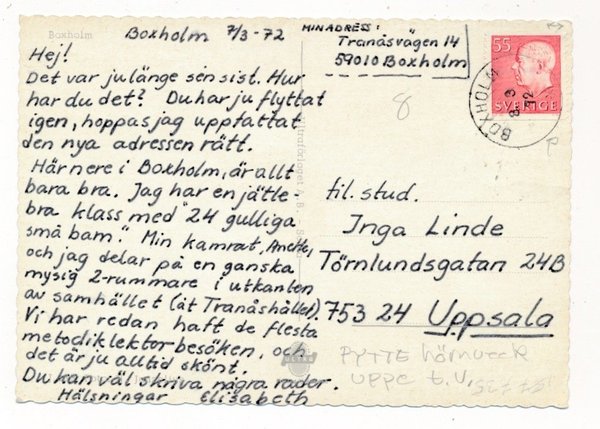 Boxholm
Boxholm 7/3-72
Hej!
Det var ju länge sén sist. Hur
har du det? Du har ju flyttat
igen, hoppas jag uppfattat
den nya adressen rätt.
Här nere i Boxholm, är allt
bara bra. Jag har en jätte-
bra klass med "24 gulliga
små barn." Min kamrat, Anette,
och jag delar på en ganska
mysig 2-rummare i utkanten
av samhället (åt Tranåshållet).
Vi har redan haft de flesta
metodiklektorbesöken, och
det är ju alltid skönt.
Du kan väl skriva några rader.
Hälsningar Elisabeth
MIN ADRESS:
Tranåsvägen 14
59010 Boxholm
8
55
SVERIGE
BOXHOLM
8 3
72
til. stud.
Inga Linde
Törnlundsgatan 24B
753 24 Uppsala
PYTTE hörnveck
uppe t.v.